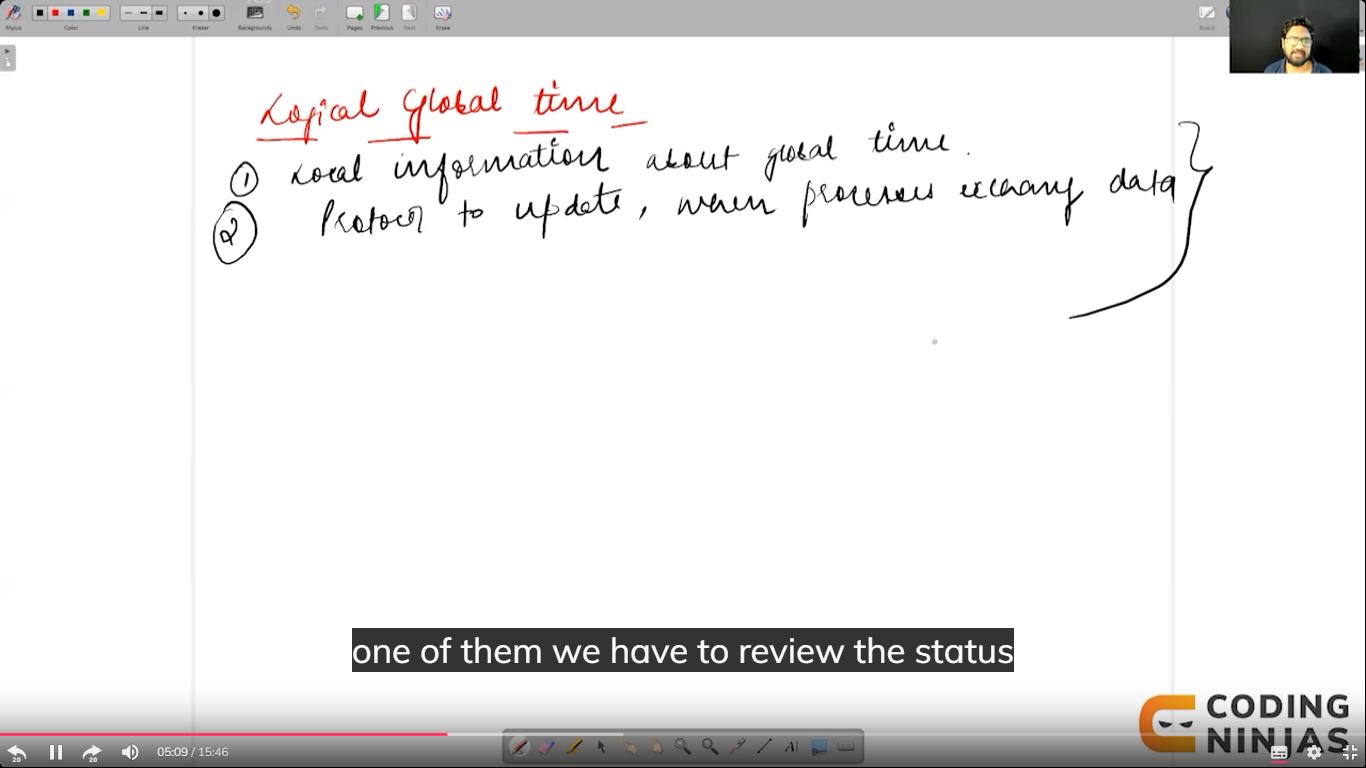 Stylus Color Line Eraser Backgrounds Undo Redo Pages Previous Next Erase Board
Logical Global time
① Local information about global time.
② Protocol to update, when processes exchang data
one of them we have to review the status
CODING
NINJAS
20 20 05:09 / 15:46